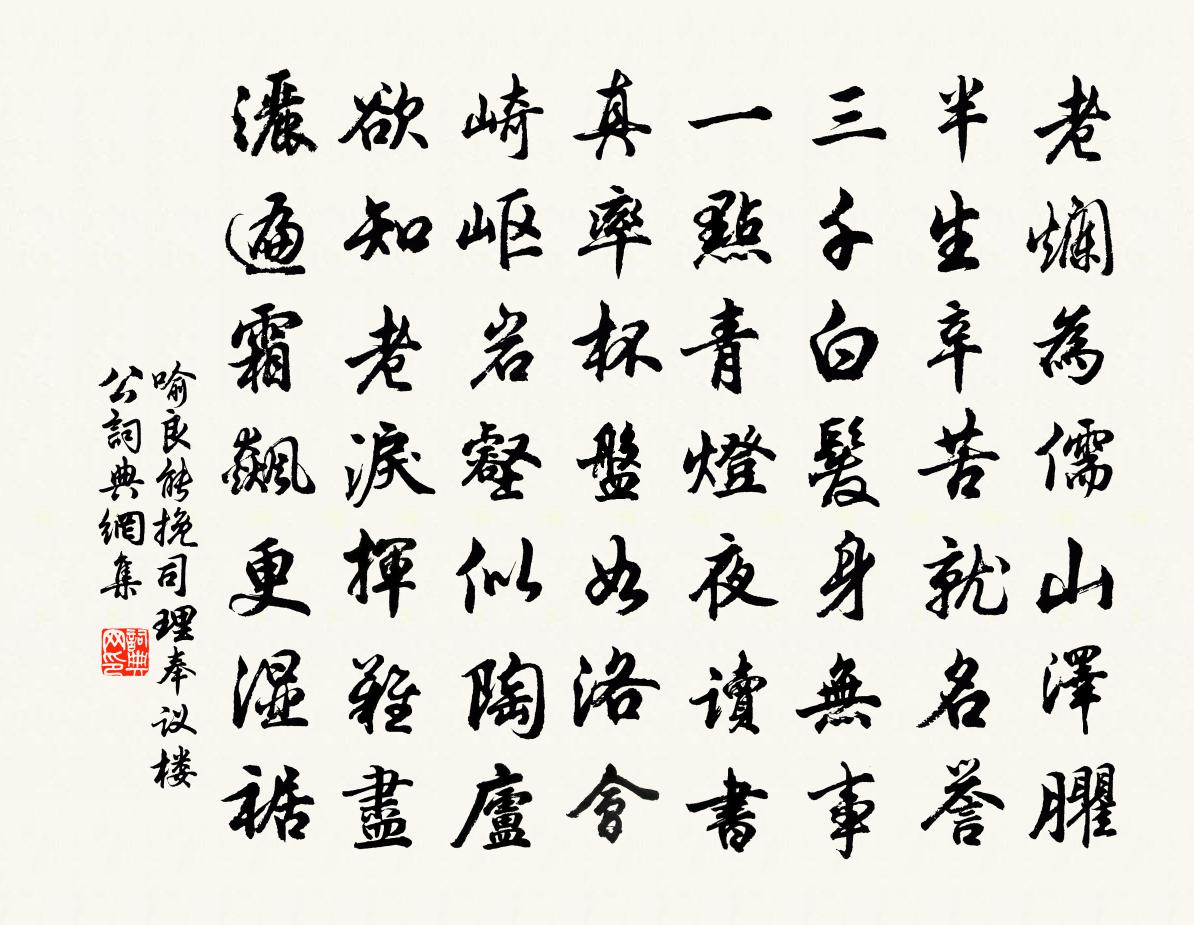 老爛為儒山澤臞
半生辛苦就名譽
三千白髮身無事
一點青燈夜讀書
真率杯盤如洛會
崎岖岩壑似陶廬
欲知老淚揮難盡
灑遍霜飆更湿裾
喻良能挽司理奉议楼
公詞典網集
詞典网印